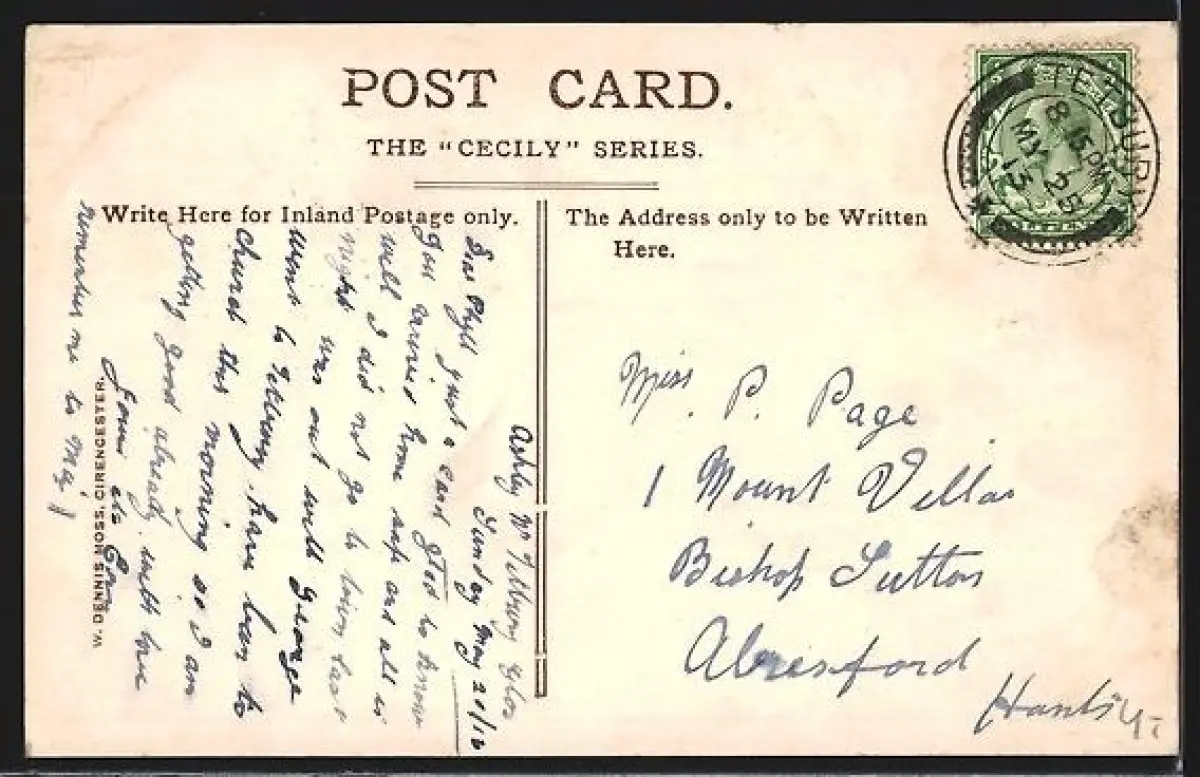 POST CARD.
THE "CECILY" SERIES.
Write Here for Inland Postage only.
The Address only to be Written
Here.
TETBURY
8 15 PM
MY 25
13
Miss. P. Page
1 Mount Villas
Bishop Sutton
Alresford
Hants
Ashley Nr Tetbury Glos
Sunday May
Dear Phyll just a card glad to know
you arrived home safe and all is
well I did not go to town last
night was out with George
went to Tetbury have been to
church this morning so I am
getting good already with love
remember me to
W. DENNIS MOSS, CIRENCESTER.